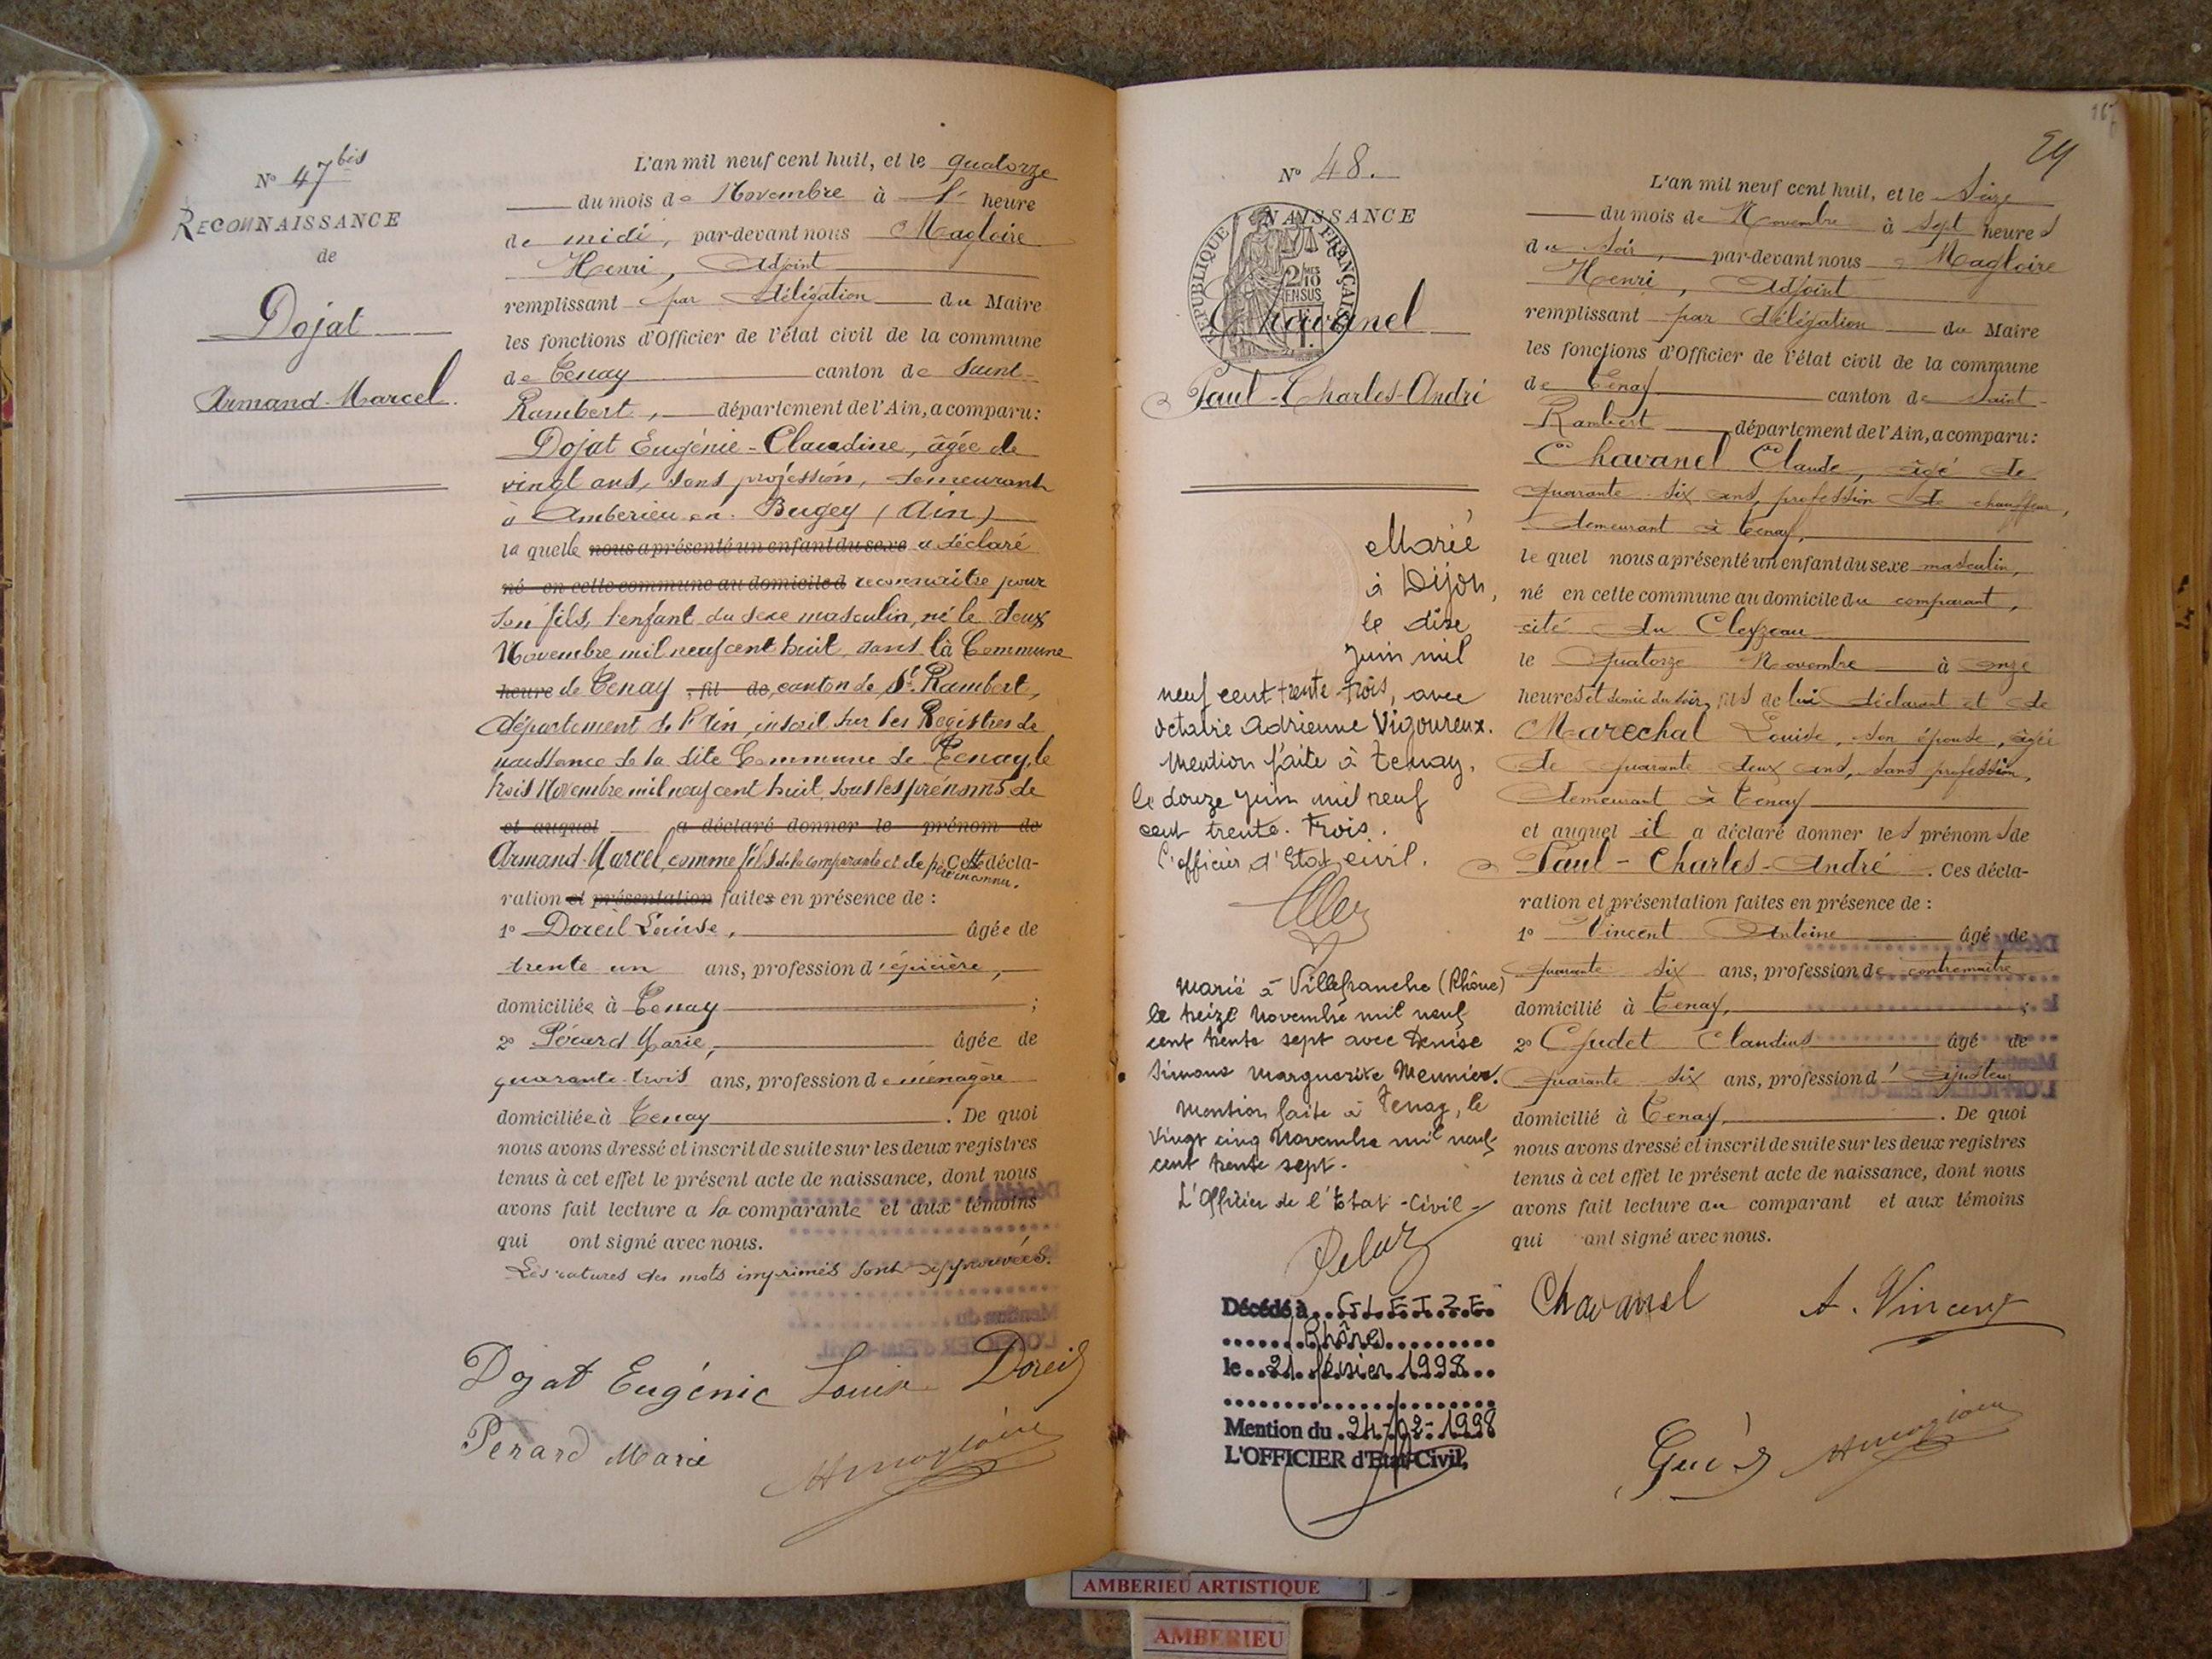 N° 47 bis
RECONNAISSANCE
de
Dojat
Armand-Marcel.
L'an mil neuf cent huit, et le quatorze
du mois de Novembre à heure
de midi, par-devant nous Magloire
Henri, Adjoint
remplissant par délégation du Maire
les fonctions d'Officier de l'état civil de la commune
de Tenay canton de Saint-
Rambert, département de l'Ain, a comparu:
Dojat Eugénie-Claudine, âgée de
vingt ans, sans profession, demeurant
à Ambérieu en Bugey (Ain)
la quelle nous a présenté un enfant du sexe a déclaré
né en cette commune au domicile d reconnaitre pour
son fils, l'enfant du sexe masculin, né le deux
Novembre mil neuf cent huit, dans la Commune
heure de Tenay, fil de, canton de St Rambert,
département de l'Ain, inscrit sur les Registres de
naissance de la dite Commune de Tenay, le
trois Novembre mil neuf cent huit, sous les prénoms de
et auquel a déclaré donner le prénom de
Armand-Marcel, comme fils de la comparante et de père inconnu. Cette décla-
ration et présentation faites en présence de :
1° Doreil Louise, âgée de
trente un ans, profession d'épicière,
domiciliée à Tenay ;
2° Pérard Marie, âgée de
quarante-trois ans, profession de ménagère
domiciliée à Tenay. De quoi
nous avons dressé et inscrit de suite sur les deux registres
tenus à cet effet le présent acte de naissance, dont nous
avons fait lecture a la comparante et aux témoins
qui ont signé avec nous.
Les ratures des mots imprimés sont approuvées.
Dojat Eugénie Louise Doreil
Perard Marie
HMagloire
167
29
N° 48.
NAISSANCE
RÉPUBLIQUE FRANÇAISE
2/10 EN SUS
Chavanel
Paul-Charles-André
Marié
à Dijon,
le dix
juin mil
neuf cent trente-trois, avec
Octavie Adrienne Vigoureux.
Mention faite à Tenay,
le douze juin mil neuf
cent trente-trois.
L'officier d'Etat civil.
Marié à Villefranche (Rhône)
le treize Novembre mil neuf
cent trente sept avec Denise
Simone Marguerite Meunier.
Mention faite à Tenay, le
vingt cinq Novembre mil neuf
cent trente sept.
L'Officier de l'Etat-Civil-
Décédé à GLEIZE
(Rhône)
le 21 février 1998
Mention du 24-02-1998
L'OFFICIER d'Etat-Civil,
L'an mil neuf cent huit, et le Seize
du mois de Novembre à sept heures
du soir, par-devant nous Magloire
Henri, Adjoint
remplissant par délégation du Maire
les fonctions d'Officier de l'état civil de la commune
de Tenay canton de Saint-
Rambert département de l'Ain, a comparu:
Chavanel Claude, âgé de
quarante-six ans, profession de chauffeur,
demeurant à Tenay,
le quel nous a présenté un enfant du sexe masculin,
né en cette commune au domicile du comparant,
cité du Cleyzeau
le quatorze Novembre à onze
heures et demie du soir, fils de lui déclarant et de
Marechal Louise, son épouse, âgée
de quarante deux ans, sans profession,
demeurant à Tenay
et auquel il a déclaré donner les prénoms de
Paul-Charles-André. Ces décla-
ration et présentation faites en présence de :
1° Vincent Antoine âgé de
quarante six ans, profession de contremaitre
domicilié à Tenay, ;
2° Claudius âgé de
quarante six ans, profession d'ajusteur
domicilié à Tenay, . De quoi
nous avons dressé et inscrit de suite sur les deux registres
tenus à cet effet le présent acte de naissance, dont nous
avons fait lecture au comparant et aux témoins
qui ont signé avec nous.
Chavanel A. Vincent
HMagloire
AMBERIEU ARTISTIQUE
AMBERIEU